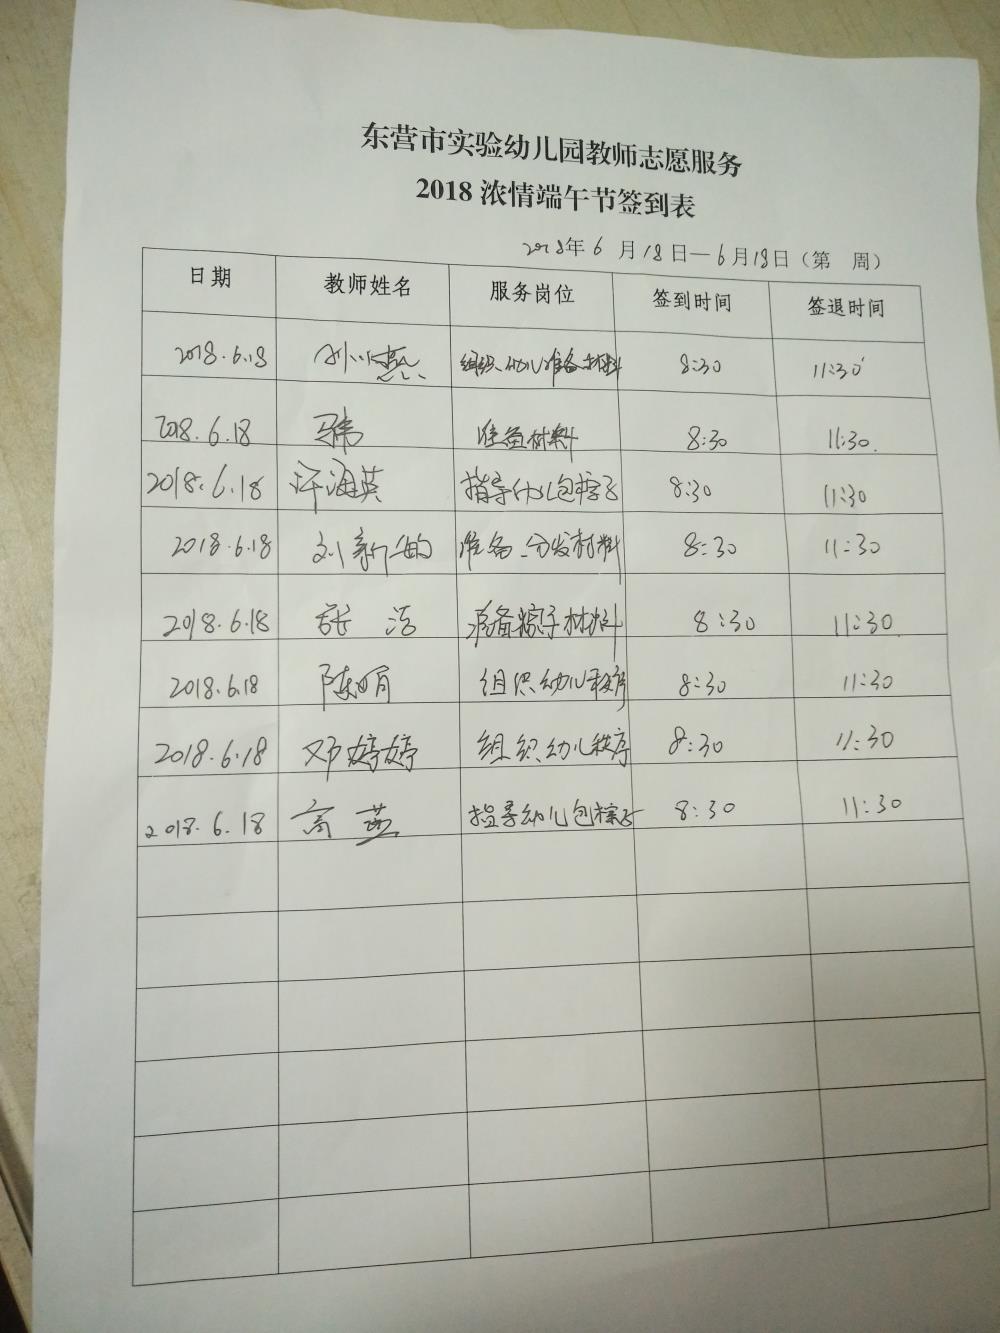 东营市实验幼儿园教师志愿服务
2018 浓情端午节签到表
2018年6月18日—6月18日（第 周）
日期 教师姓名 服务岗位 签到时间 签退时间
2018.6.18 组织幼儿准备材料 8:30 11:30
2018.6.18 准备材料 8:30 11:30
2018.6.18 许海英 指导幼儿包粽子 8:30 11:30
2018.6.18 刘新 准备、分发材料 8:30 11:30
2018.6.18 张洁 准备粽子材料 8:30 11:30
2018.6.18 陈娟 组织幼儿秩序 8:30 11:30
2018.6.18 邓婷婷 组织幼儿秩序 8:30 11:30
2018.6.18 高燕 指导幼儿包粽子 8:30 11:30